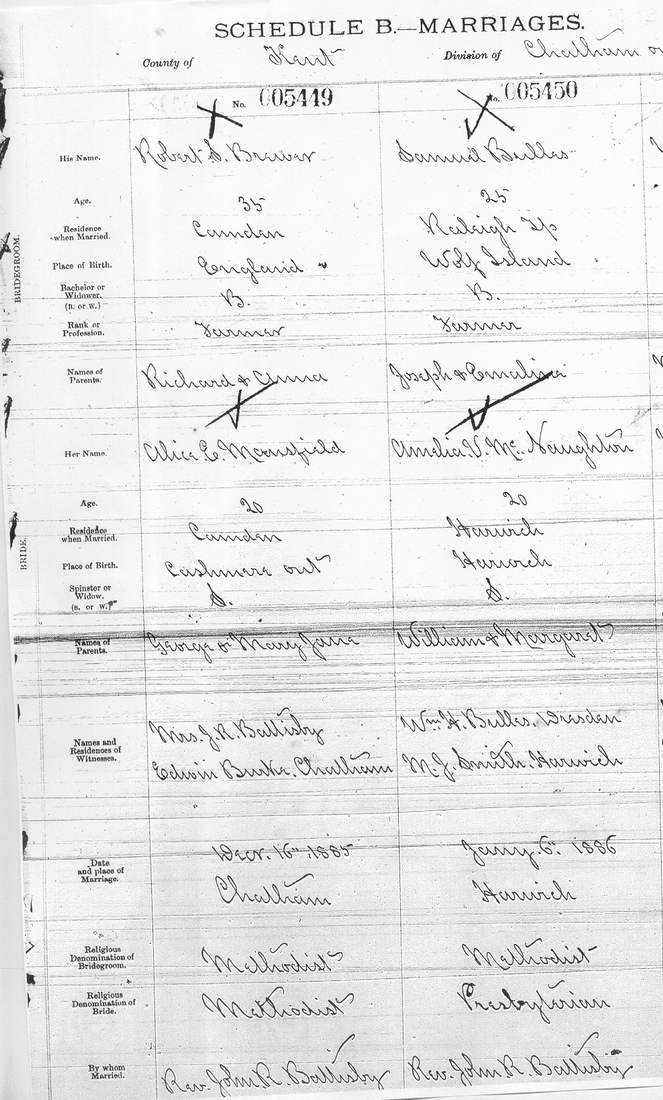 SCHEDULE B.—MARRIAGES.
County of Kent Division of Chatham
No. 005449 No. 005450
BRIDEGROOM.
His Name. Robert S. Brewer Samuel Bulles
Age. 35 25
Residence
when Married. Camden Raleigh Tp
Place of Birth. England Wolf Island
Bachelor or
Widower.
(B. or W.) B. B.
Rank or
Profession. Farmer Farmer
Names of
Parents. Richard & Anna Joseph & Emaline
BRIDE.
Her Name. Alice E. Mansfield Amelia V. Mc Naughton
Age. 20 20
Residence
when Married. Camden Harwich
Place of Birth. Cashmere Ont Harwich
Spinster or
Widow.
(S. or W.) S. S.
Names of
Parents. George & Mary Jane William & Margaret
Names and
Residences of
Witnesses.
Mrs. J. R. Battisby Wm H. Bulles. Dresden
Edwin Burke. Chatham M. J. Smith. Harwich
Date
and place of
Marriage.
Decr. 16th 1885 Jany. 6th 1886
Chatham Harwich
Religious
Denomination of
Bridegroom. Methodist Methodist
Religious
Denomination of
Bride. Methodist Presbyterian
By whom
Married. Rev. John R. Battisby Rev. John R. Battisby